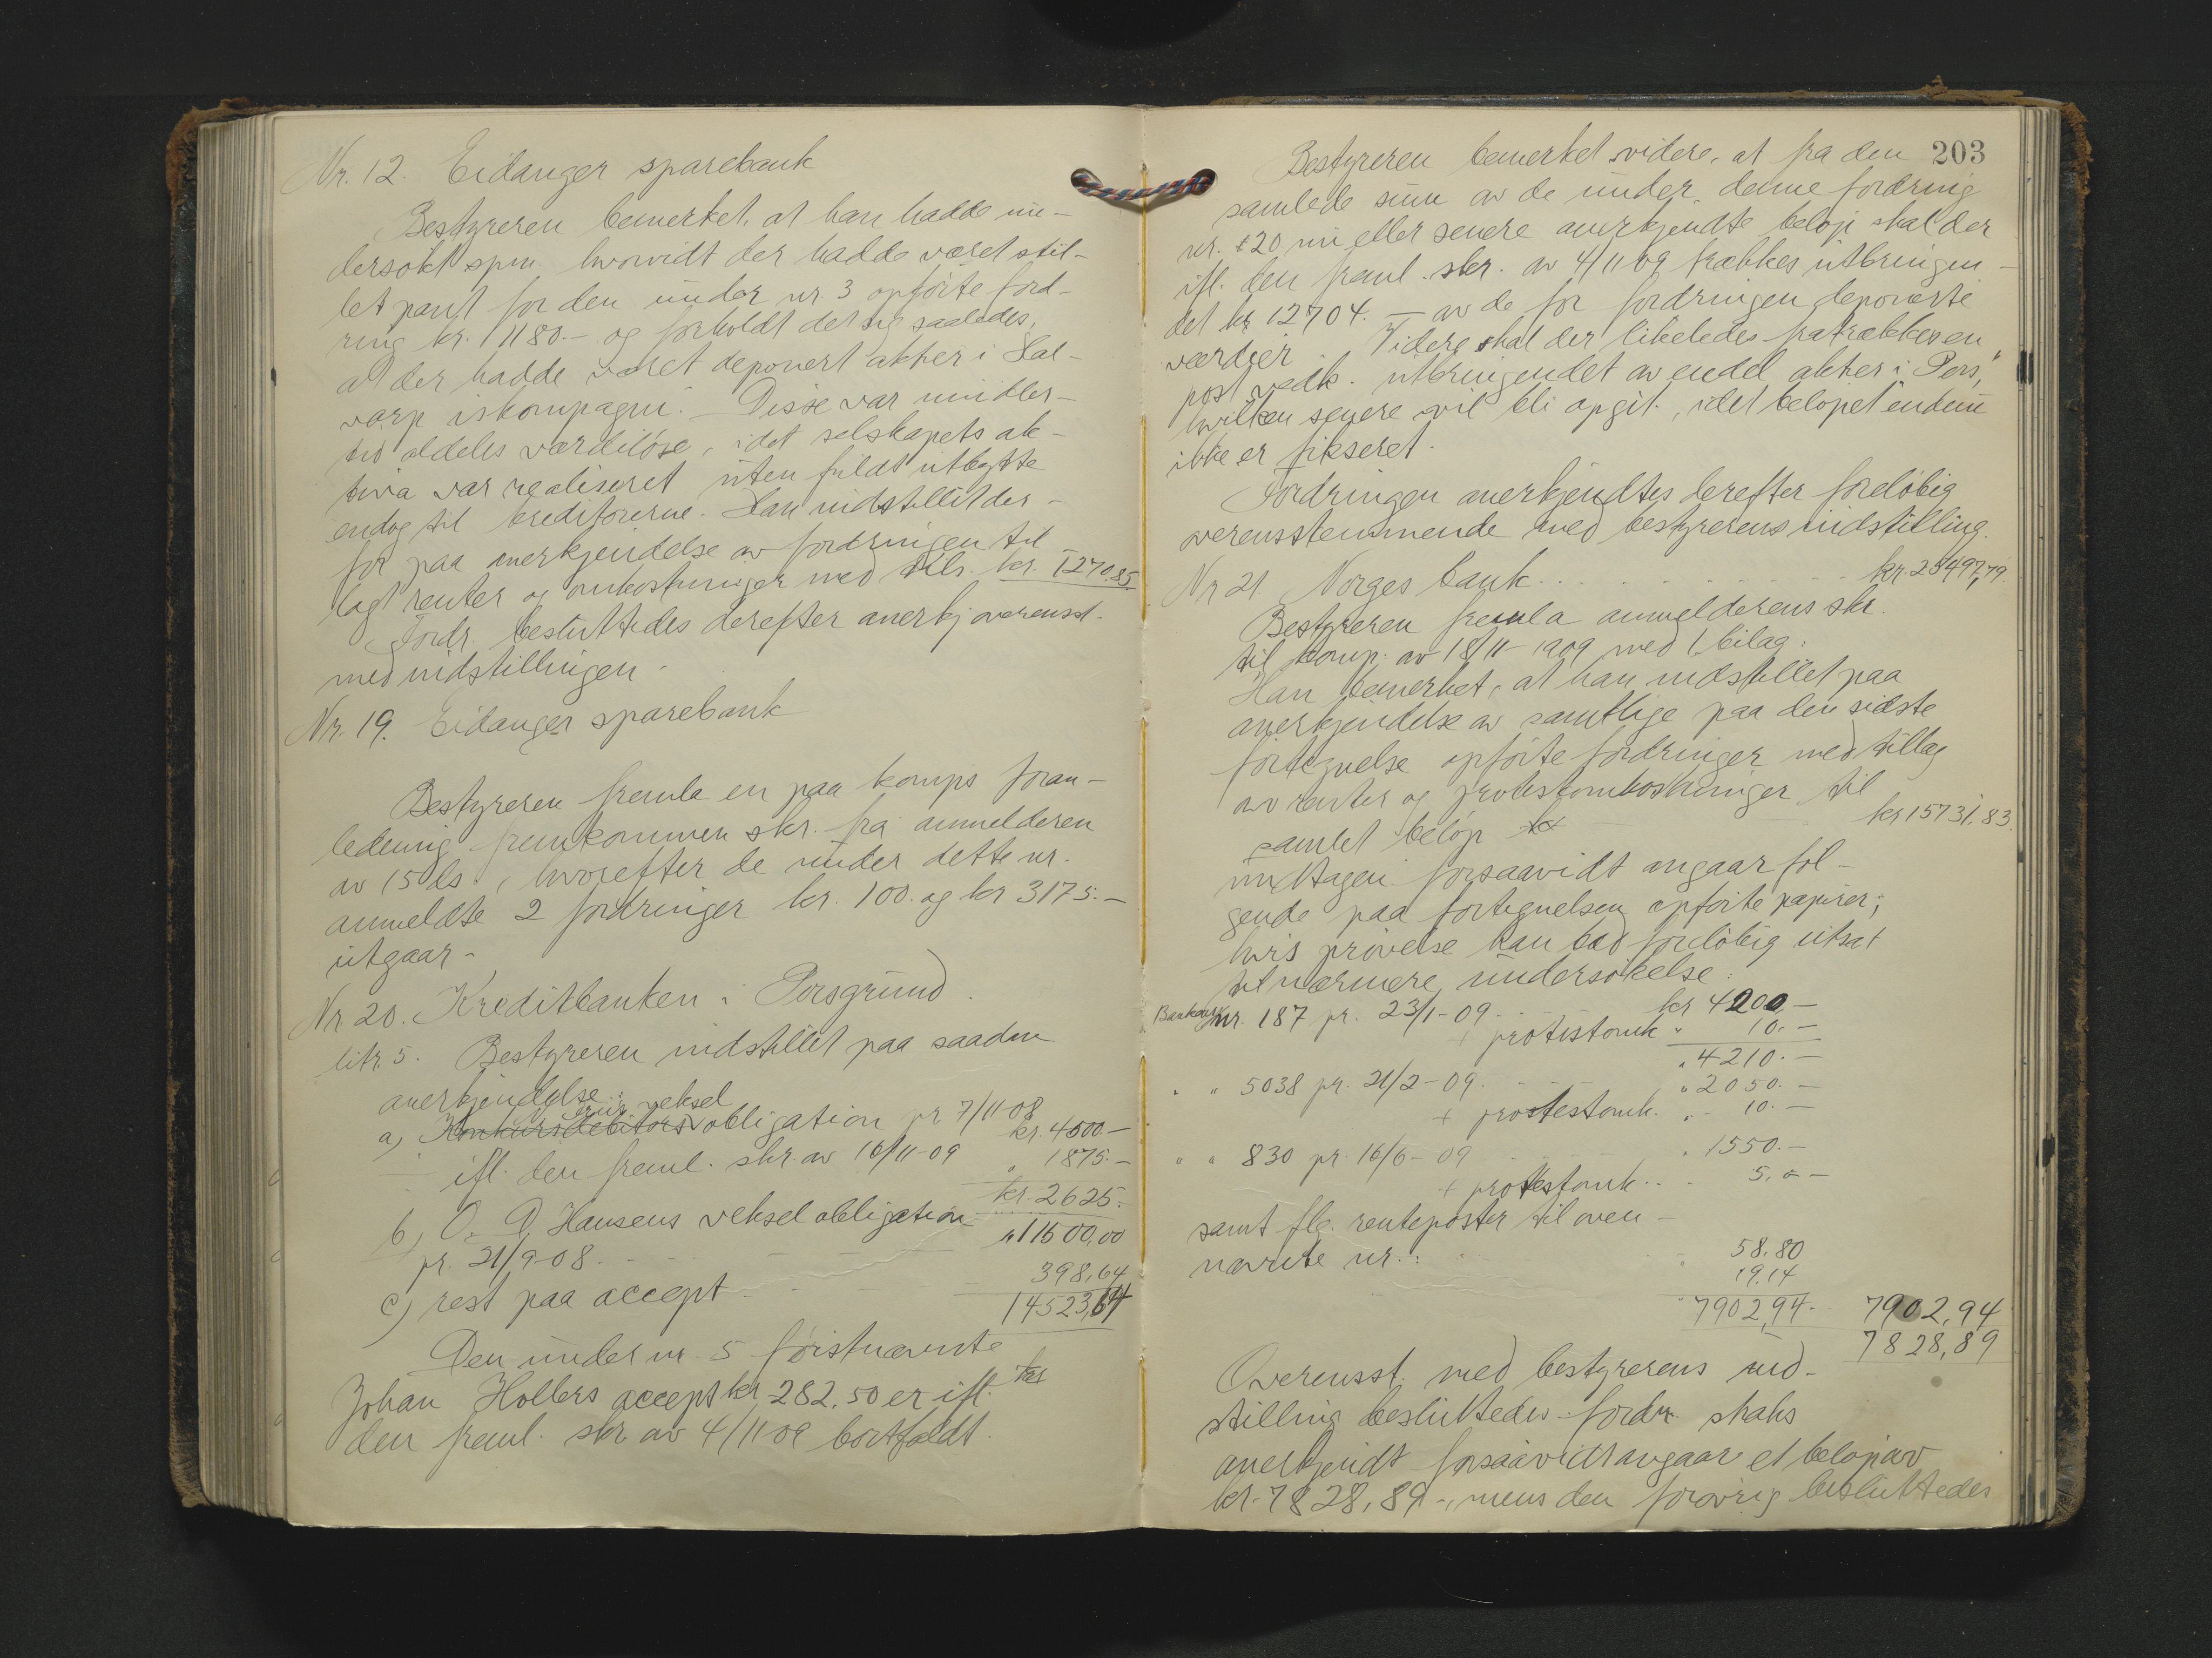 Nr. 12. Eidanger sparebank
Bestyreren bemerket, at han hadde un-
dersøkt spm. hvorvidt der hadde været stil-
let pant for den under nr. 3 opførte ford-
ring kr. 1180.- og forholdt det sig saaledes,
at der hadde været deponert aktier i Hal-
varp iskompagni. - Disse var imidler-
tid aldeles værdiløse, idet selskapets ak-
tiva var realiseret uten fuldt utbytte
endog til kreditorerne. Han indstillet der-
for paa anerkjendelse av fordringen til
lagt renter og omkostninger med tils. kr. 1270.85
Fordr. besluttedes derefter anerkj. overensst.
med indstillingen.
Nr. 19. Eidanger sparebank
Bestyreren fremla en paa komp's foran-
ledning fremkommen skr. fra anmelderen
av 15 ds., hvorefter de under dette nr.
anmeldte 2 fordringer kr. 100. og kr 3175.-
utgaar.-
Nr 20. Kreditbanken i Porsgrund.
litr. 5. Bestyreren indstillet paa saadan
anerkjendelse:
a) Konkursdebitors veksel obligation pr 7/11-08 kr. 4500.-
ifl. den freml. skr. av 16/11-09 " 1875.-
kr. 2625.-
b) O. A. Hansens vekselobligation
pr. 21/9-08. - - - " 11500,00
c) rest paa accept - - 398,64
14523,64
Den under nr. 5 førstnævnte
Johan Hollers accept kr 282,50 er ifl.
den freml. skr. av 4/11 09 bortfaldt.
203
Bestyreren bemerket videre, at fra den
samlede sum av de under denne fordring
nr. 20 nu eller senere anerkjendte beløp skal der
ifl. den freml. skr. av 4/11 09 trækkes utbringen-
det kr 12704. - av de for fordringen deponerte
værdier. Videre skal der likeledes fratrækkes en
post vedk. utbringendet av endel aktier i "Pors,"
hvilken senere vil bli opgit, idet beløpet endnu
ikke er fikseret.
Fordringen anerkjendtes derefter foreløbig
overensstemmende med bestyrerens indstilling.
Nr 21. Norges bank. . . . . . . kr. 23497,79.
Bestyreren fremla anmelderens skr.
til komp. av 18/11-1909 med 1 bilag.
Han bemerket, at han indstillet paa
anerkjendelse av samtlige paa den sidste
fortegnelse opførte fordringer med tillæg
av renter og protestomkostninger til
samlet beløp kr 15731.83.
undtagen forsaavidt angaar føl-
gende paa fortegnelsen opførte papirer;
hvis prøvelse han bad foreløbig utsat
til nærmere undersøkelse:
Bankens nr. 187 pr. 23/1-09 - - - kr 4200.-
+ protestomk " 10.-
" 4210.-
" " 5038 pr. 21/2-09. - - - " 2050.-
+ protestomk. " - 10.-
" " 830 pr. 16/6-09 - - - " 1550.-
+ protestomk. . . 5,0-
samt flg. renteposter til oven-
nævnte nr.: 58.80
19.14
7902,94. 7902,94
7828,89
Overensst. med bestyrerens ind-
stilling besluttedes fordr. straks
anerkjendt forsaavidt angaar et beløp av
kr. 7828,89-, mens den forøvrig besluttedes